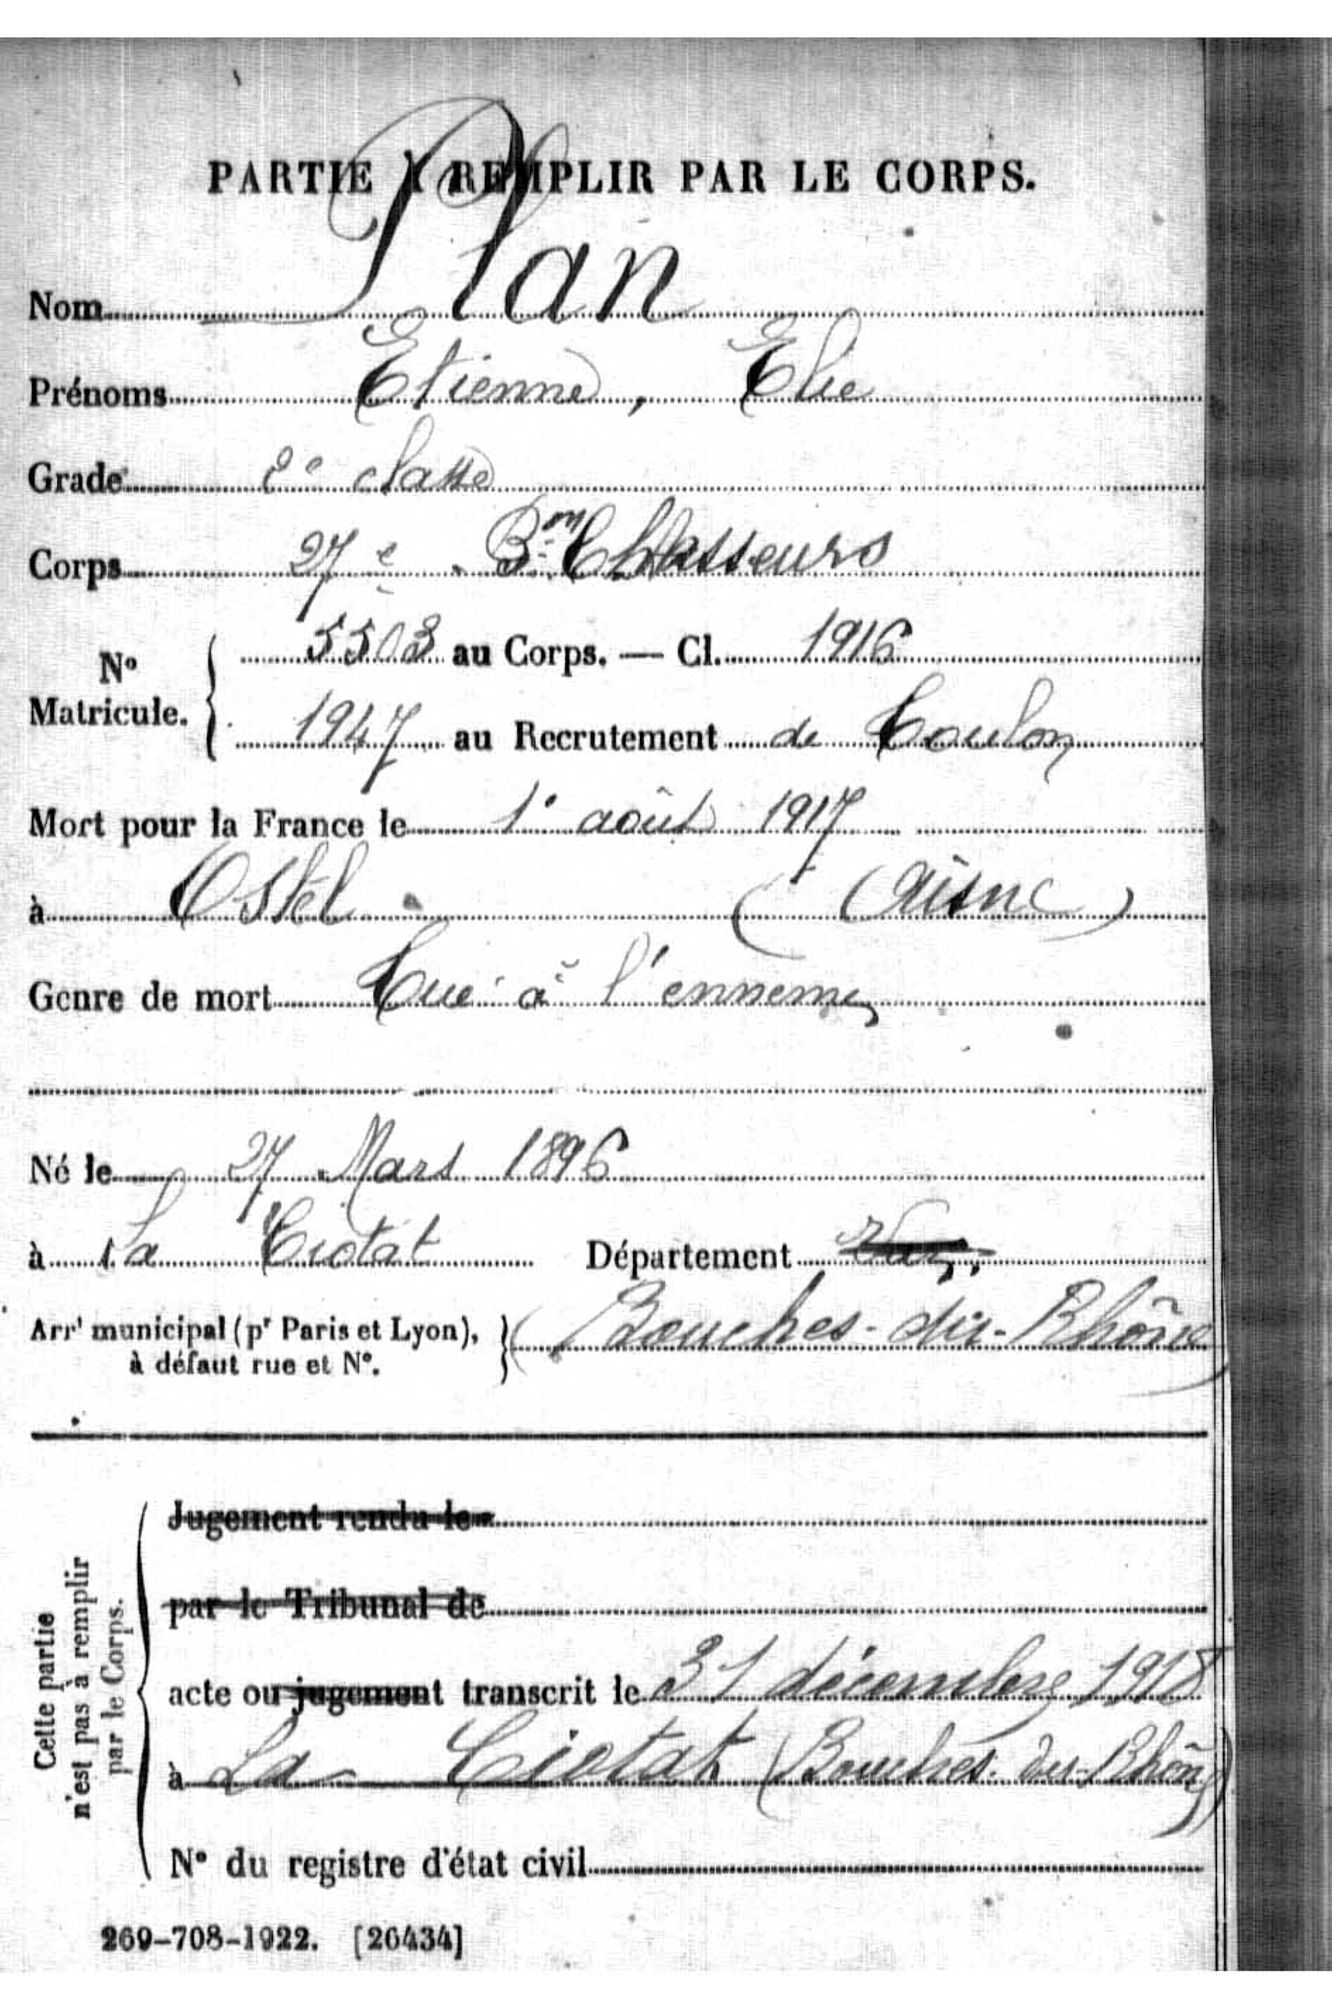 PARTIE À REMPLIR PAR LE CORPS.
Nom Plan
Prénoms Etienne, Elie
Grade 2e classe
Corps 27e Bon Chasseurs
No Matricule. { 5503 au Corps. — Cl. 1916
1947 au Recrutement de Toulon
Mort pour la France le 1er août 1917
à Ostel (Aisne)
Genre de mort Tué à l'ennemi
Né le 27 Mars 1896
à La Ciotat Département Var
Arrt municipal (pr Paris et Lyon), à défaut rue et No. } (Bouches-du-Rhône)
Cette partie n'est pas à remplir par le Corps.
Jugement rendu le
par le Tribunal de
acte ou jugement transcrit le 31 décembre 1918
à La Ciotat (Bouches-du-Rhône)
No du registre d'état civil
269-708-1922. [26434]